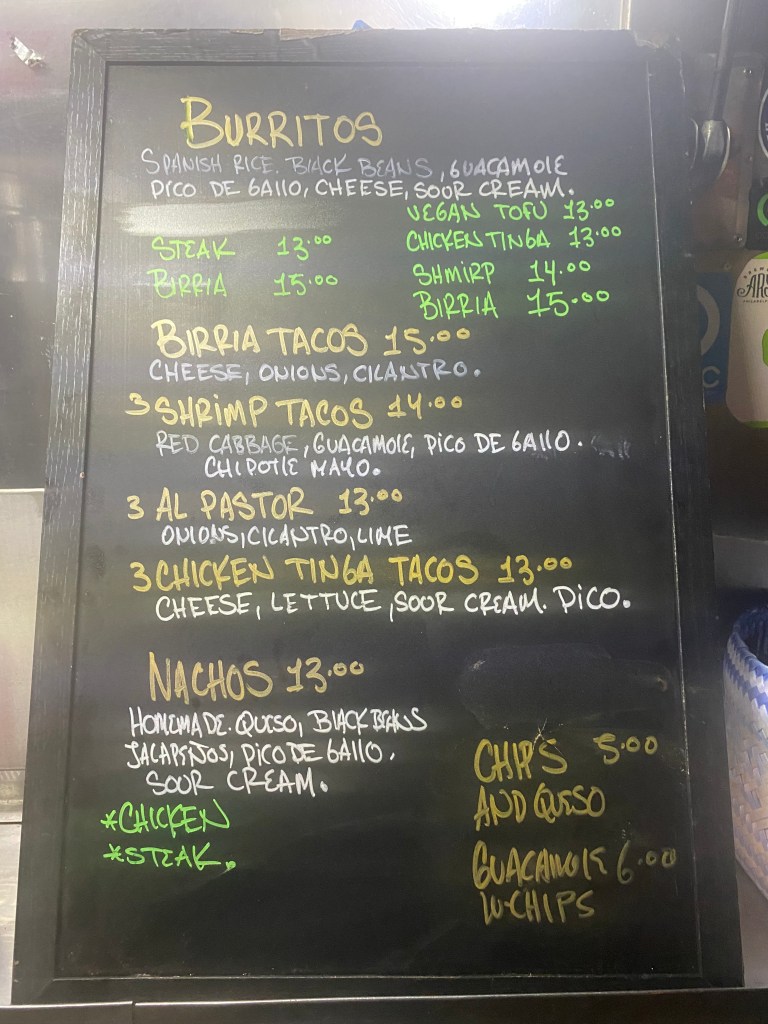 BURRITOS
SPANISH RICE. BLACK BEANS, GUACAMOLE
PICO DE GALLO, CHEESE, SOUR CREAM.
STEAK 13.00
BIRRIA 15.00
VEGAN TOFU 13.00
CHICKEN TINGA 13.00
SHMIRP 14.00
BIRRIA 15.00
BIRRIA TACOS 15.00
CHEESE, ONIONS, CILANTRO.
3 SHRIMP TACOS 14.00
RED CABBAGE, GUACAMOLE, PICO DE GALLO.
CHIPOTLE MAYO.
3 AL PASTOR 13.00
ONIONS, CILANTRO, LIME
3 CHICKEN TINGA TACOS 13.00
CHEESE, LETTUCE, SOUR CREAM. PICO.
NACHOS 13.00
HOMEMADE. QUESO, BLACK BEANS
JALAPEÑOS, PICO DE GALLO.
SOUR CREAM.
*CHICKEN
*STEAK.
CHIPS 5.00
AND QUESO
GUACAMOLE 6.00
W-CHIPS